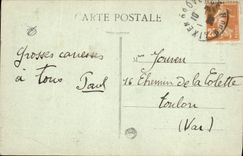 CARTE POSTALE
Grosses caresses
à tous Paul
Mr Jouven
16 Chemin de la Colette
Toulon
(Var)